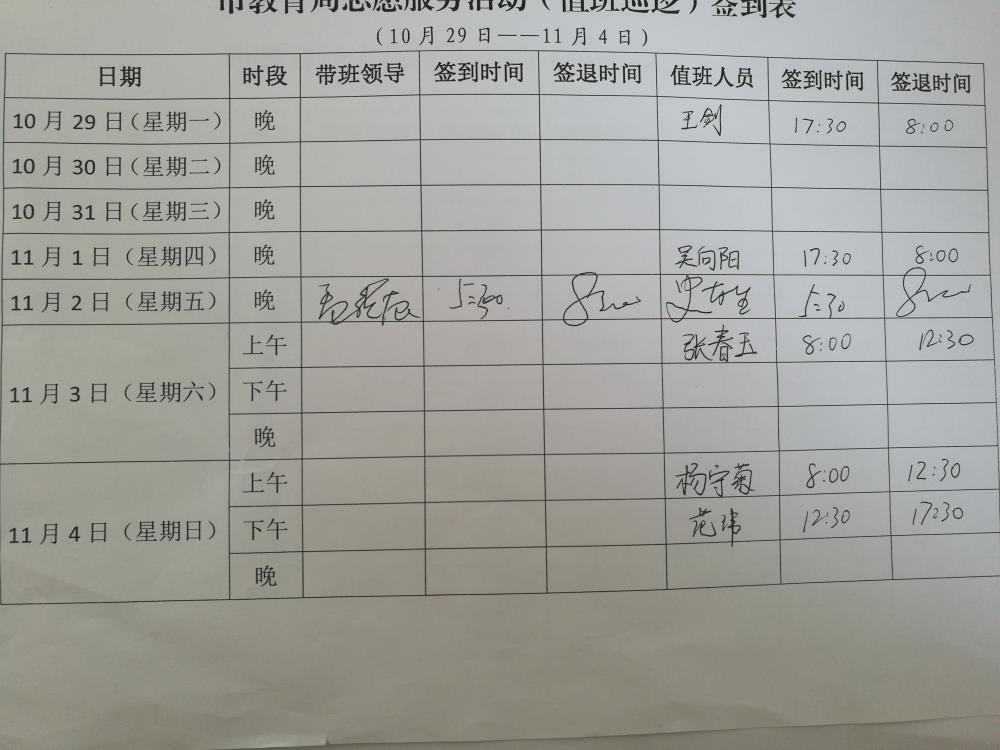 市教育局志愿服务活动（值班巡逻）签到表
（10月29日——11月4日）
日期 时段 带班领导 签到时间 签退时间 值班人员 签到时间 签退时间
10月29日（星期一） 晚 王剑 17:30 8:00
10月30日（星期二） 晚
10月31日（星期三） 晚
11月1日（星期四） 晚 吴向阳 17:30 8:00
11月2日（星期五） 晚 5:30 5:30
11月3日（星期六） 上午 张春玉 8:00 12:30
下午
晚
11月4日（星期日） 上午 杨守菊 8:00 12:30
下午 范玮 12:30 17:30
晚